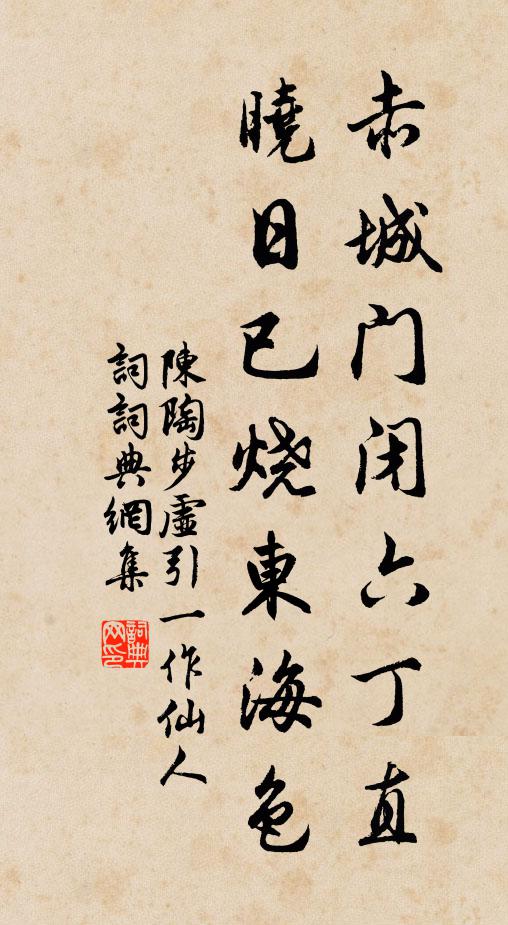 赤城門闭六丁直
曉日已烧東海色
陳陶步虛引一作仙人
詞詞典網集
詞典網印